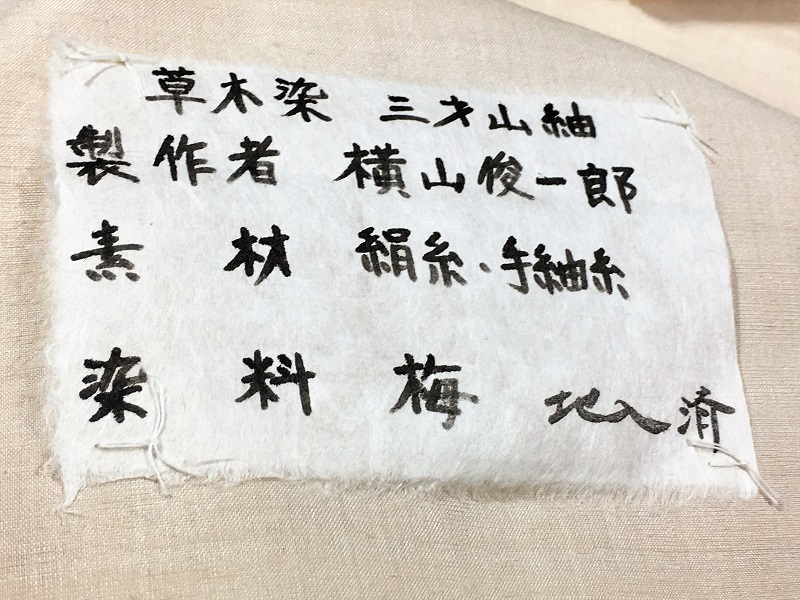 草木染 三才山紬
製作者 横山俊一郎
素材 絹糸・手紬糸
染料 梅 地入済